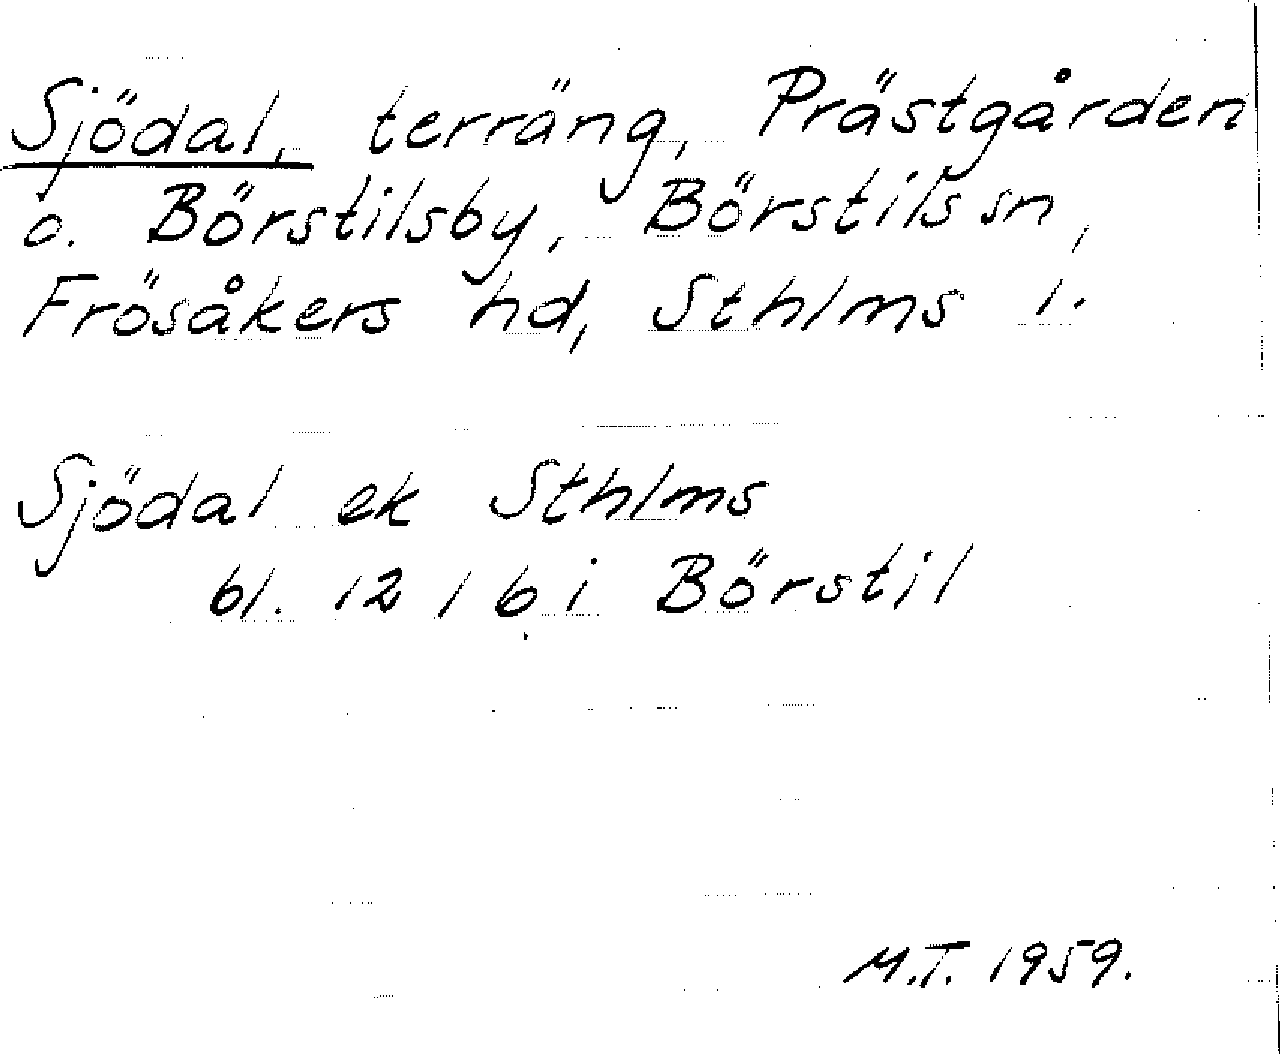 Sjödal, terräng, Prästgården
o. Börstilsby, Börstils sn,
Frösåkers hd, Sthlms l.
Sjödal ek Sthlms
bl. 12 l b i Börstil
M.T. 1959.